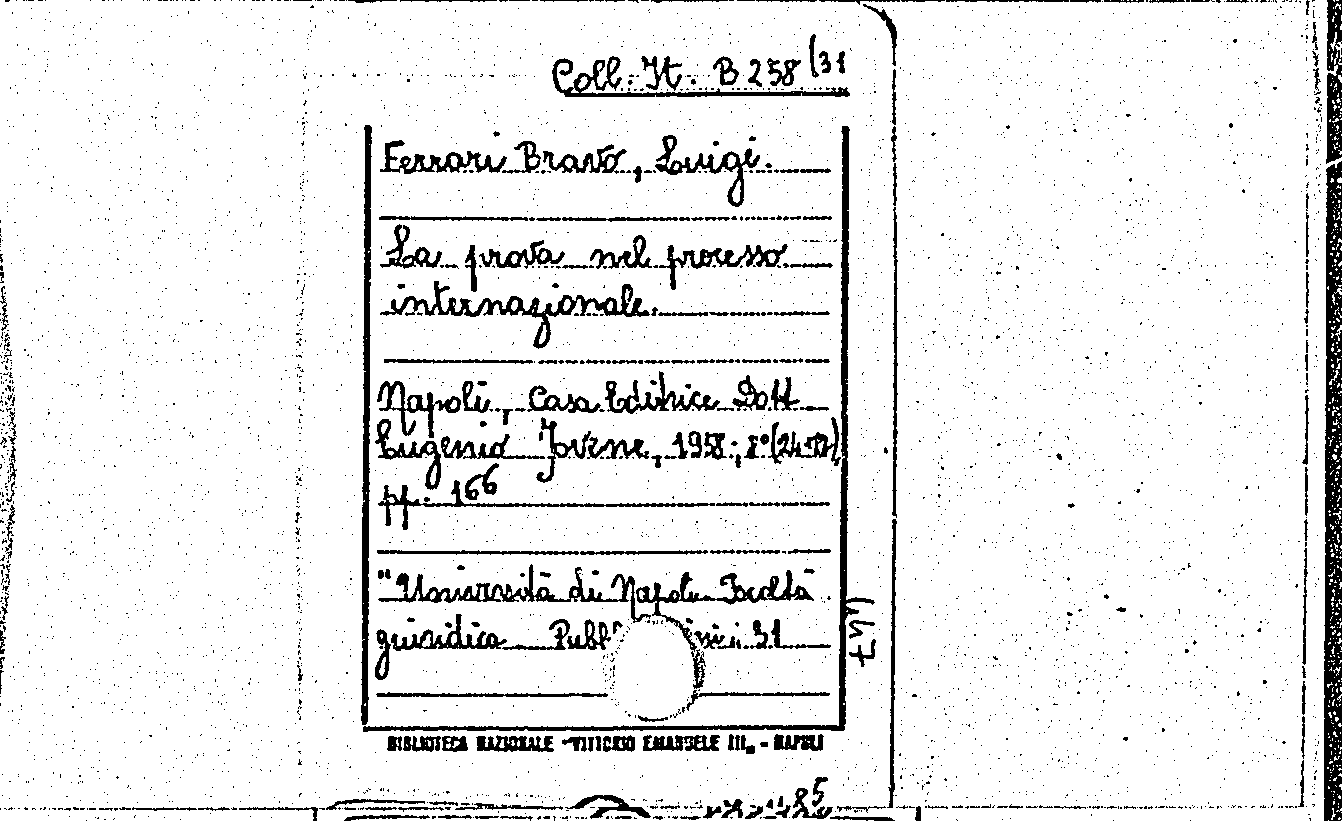 Coll. It. B 258/31
Ferrari Bravo, Luigi.
La prova nel processo
internazionale.
Napoli, Casa Editrice Dott
Eugenio Jovene, 1958; 8°
pp. 166
"Università di Napoli. Facoltà
giuridica. 31
BIBLIOTECA NAZIONALE "VITTORIO EMANUELE III„ - NAPOLI